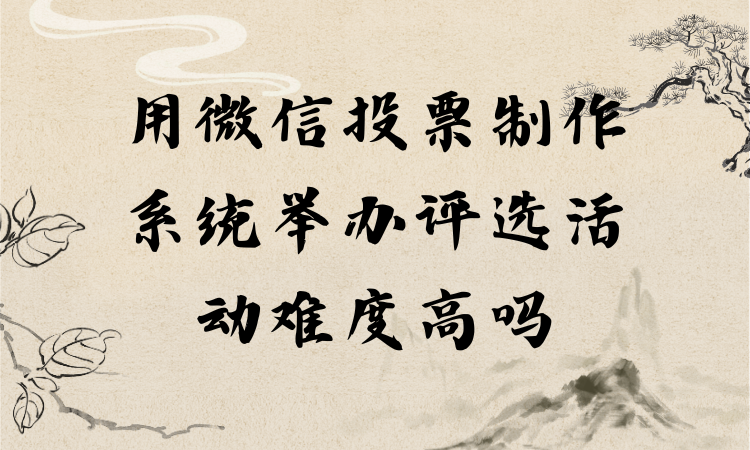 用微信投票制作
系统举办评选活
动难度高吗